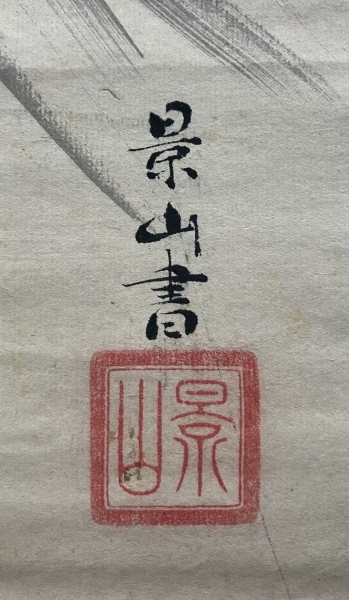 景山書
景山